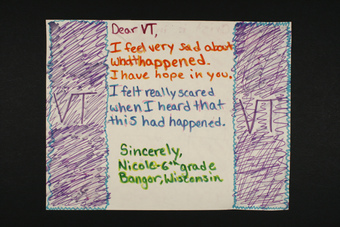 Dear VT,
I feel very sad about
what happened.
I have hope in you.
I felt really scared
when I heard that
this had happened.
VT
VT
Sincerely,
Nicole-6th grade
Bangor, Wisconsin